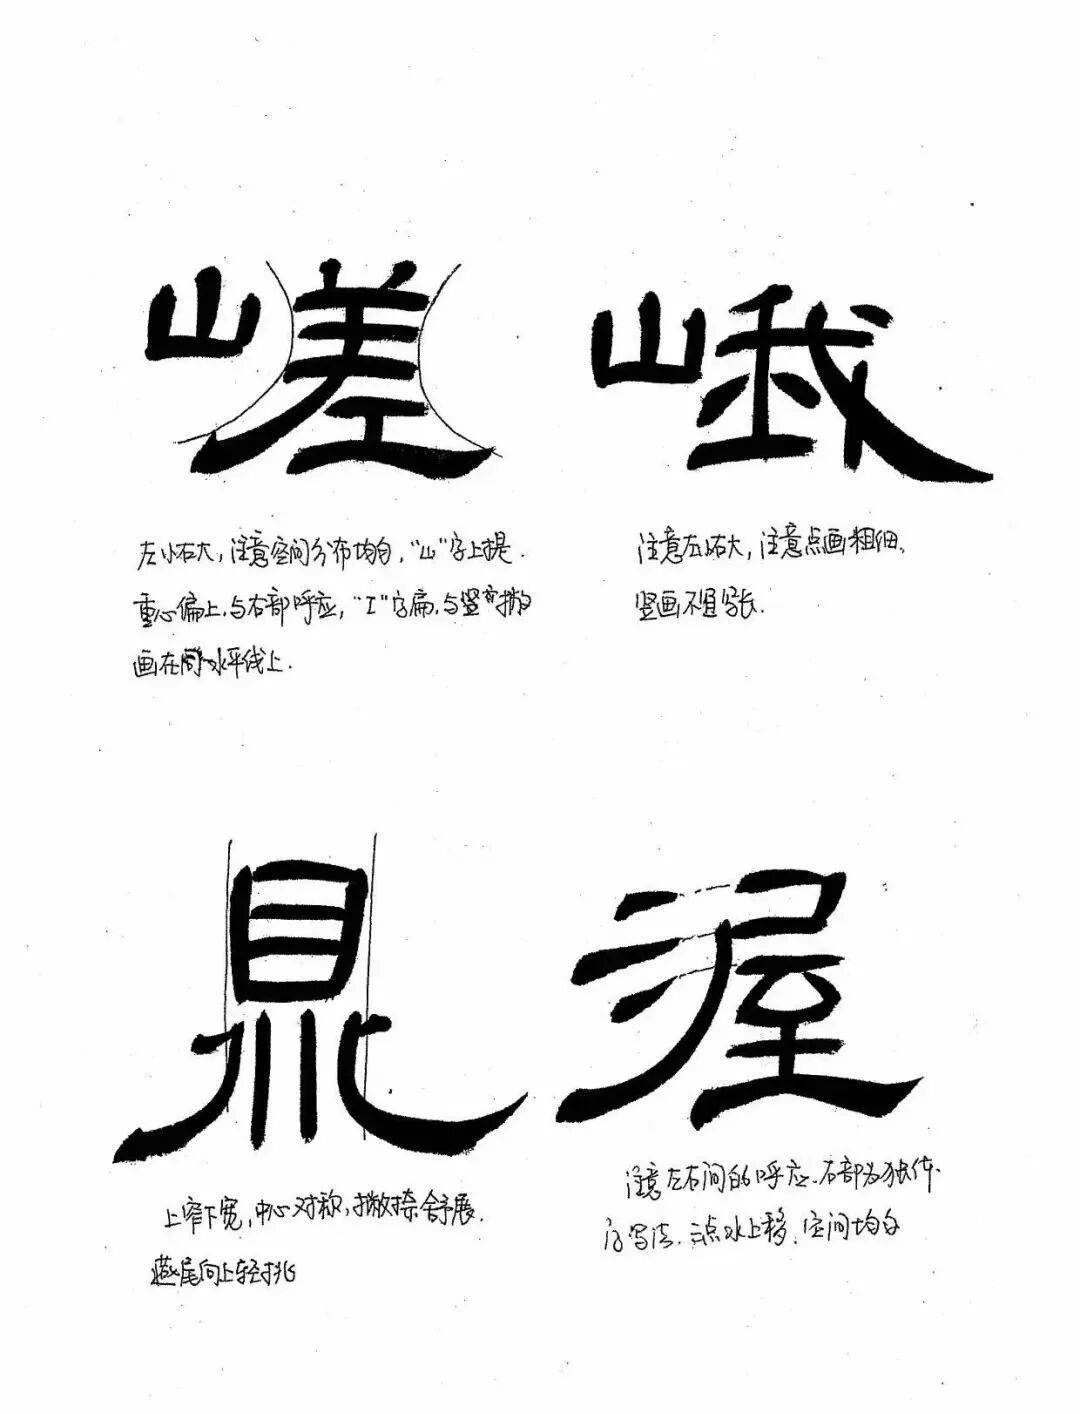 嵯
峨
左小右大，注意空间分布均匀，"山"字上提．
重心偏上，与右部呼应，"工"字扁，与竖弯撇的
画在同一水平线上．
注意左小右大，注意点画粗细、
竖画不宜写长．
鼎
渥
上窄下宽，中心对称，撇捺舒展．
燕尾向上轻挑
注意左右间的呼应、右部为独体
字写法．三点水上移、空间均匀